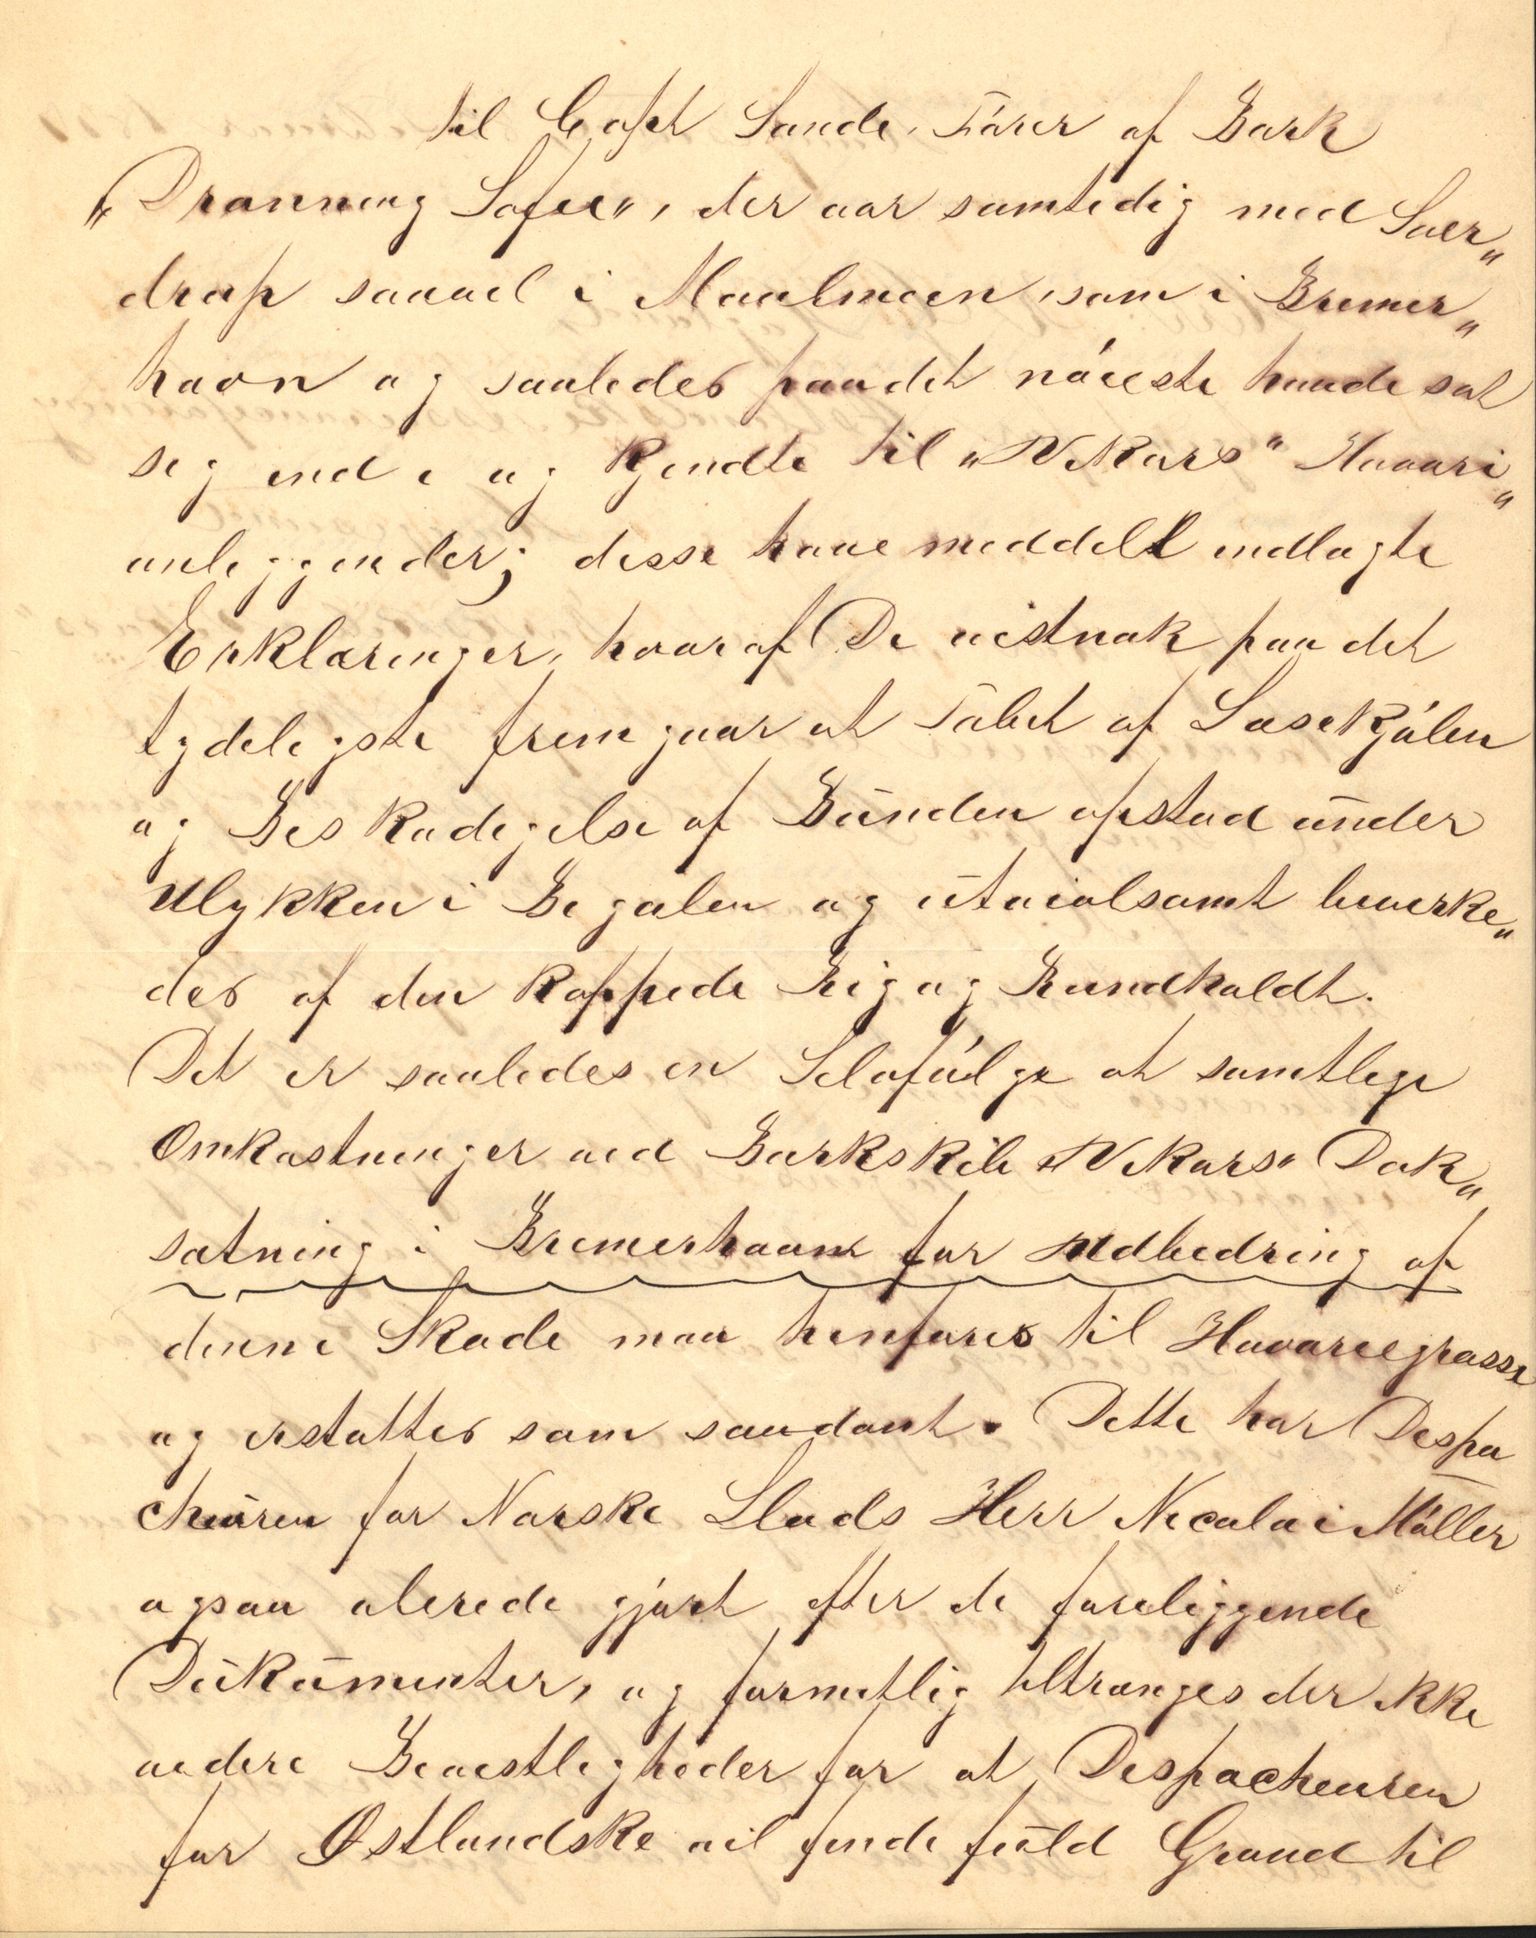 til Capt Sande, Fører af Bark
„Dronning Sofie", der var samtidig med Sver„
drup saavel i Maulmain, som i Bremer„
havn og saaledes paa det nøieste havde sat
sig ind i og kjendte til „Vikars" Havari„
anleggender; disse have meddelt indlagte
Erklæringer, hvoraf De vistnok paa det
tydeligste fremgaar at Tabet af Løsekjølen
og Beskadigelse af Bunden opstod under
Ulykken i Bjælen og utvivlsomt bevirke„
des af den kappede Rig og Rundholdt.
Det er saaledes en Selvfølge at samtlige
Omkostninger ved Barkskib „Vikars" Dok„
sætning i Bremerhavn for Udbedring af
denne Skade maa henføres til Havariegrosse
og erstattes som saadant. Dette har Despa
cheuren for Norske Lloyds Herr Nicolai Møller
ogsaa alerede gjort efter de foreliggende
Dukumenter, og formetlig tiltrænges der ikke
videre Bevistligheder for at Despacheuren
for Østlandske vil finde fuld Grund til